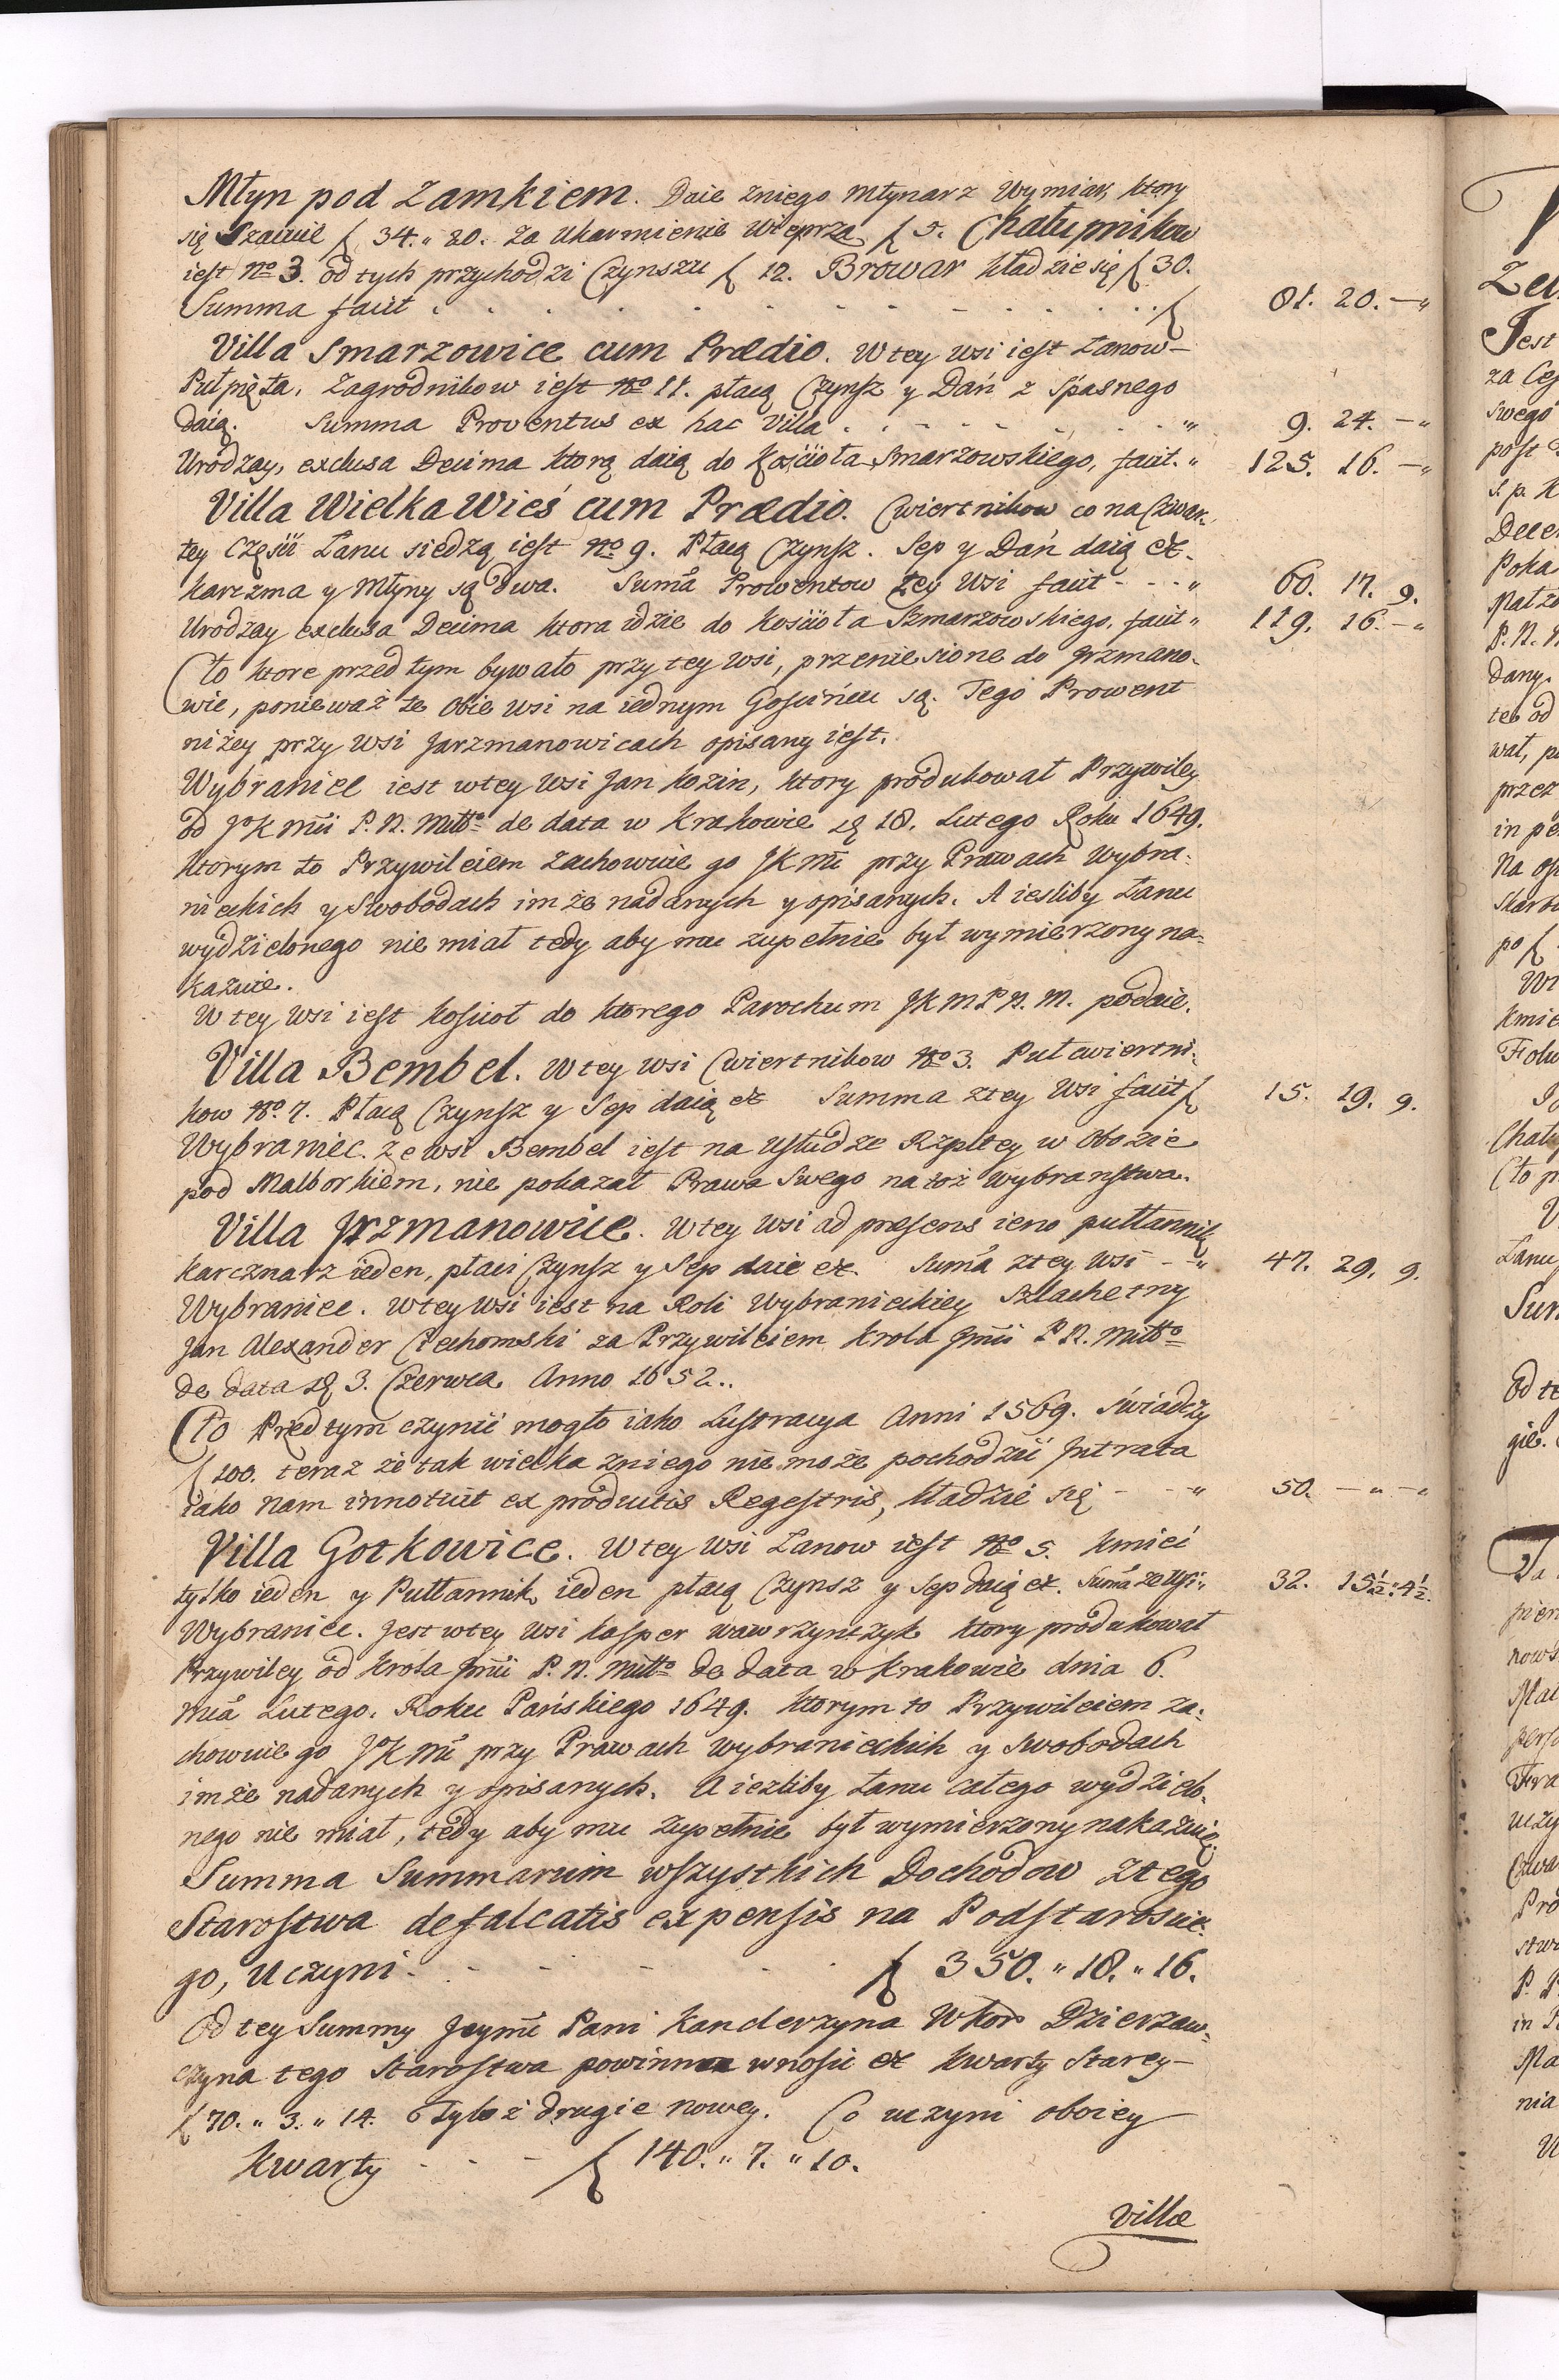 Młyn pod Zamkiem. Daie zniego Młynarz Wymiar, ktory
się Szacuie f 34. „ 20. Za Ukarmienie Wieprza f 5. Chałupnikow
iest No 3. od tych przychodzi Czynszu f 12. Browar kładzie się f 30.
Summa facit . . . . . f 81. 20. — „
Villa Smarzowice cum Prædio. W tey wsi iest Łanow
Pułpięta, Zagrodnikow iest No 11. płacą Czynsz y Dań z Spasnego
daią. Summa Proventus ex hac Villa . . . „ 9. 24. — „
Urodzay, exclusa Decima ktorą daią do Kościoła Smarzowskiego, facit. „ 125. 16. — „
Villa Wielka Wieś cum Prædio. Cwiertnikow co na Czwar-
tey Części Łanu siedzą iest No 9. Płacą Czynsz. Sep y Dań daią etc.
Karczma y Młyny są dwa. Suma Prowentow Zey Wsi facit - - - „ 60. 17. 9.
Urodzay exclusa Decima ktora idzie do Kościoła Szmarzowskiego, facit „ 119. 16. — „
Cło ktore przed tym bywało przy tey wsi, przeniesione do Jrzmano-
wic, ponieważ te Obie wsi na iednym Gościńcu są. Tego Prowent
niżey przy wsi Jarzmanowicach opisany iest.
Wybraniec iest w tey wsi Jan Kozin, ktory produkował Przywiley
od JoK Mci P. N. Mło de data w Krakowie 18. Lutego Roku 1649.
ktorym to Przywileiem zachowuie go JK Mć przy Prawach Wybra-
nieckich y Swobodach imże nadanych y opisanych. A iesliby Łanu
wydzielonego nie miał tedy aby mu zupełnie był wymierzony na-
kazuie.
W tey Wsi iest Kościoł do ktorego Parochum JKM P. N. M. podaie.
Villa Bembel. W tey wsi Cwiertnikow No 3. Pułcwiertni-
kow No. 7. Płacą Czynsz y Sep daią etc Summa z tey Wsi facit f 15. 19. 9.
Wybraniec. Ze wsi Bembel iest na Usłudze Rzpltey w Obozie
pod Malborkiem, nie pokazał Prawa Swego na toż Wybraństwa.
Villa Jrzmanowice. W tey wsi ad præsens ieno pułłannik
Karcznarz ieden, płaci Czynsz y Sep daie etc. Suma z tey Wsi - - „ 47. 29. 9.
Wybraniec. W tey wsi iest na Roli Wybranieckiey Szlachetny
Jan Alexander Ciechomski za Przywileiem Krola Jmci P. N. Mło
de data 3. Czerwca Anno 1652..
Cło Przed tym czynić mogło iako Lustracya Anni 1569. Świadczy
f 100. teraz że tak wielka zniego nie może pochodzić Jntrata
iako nam innotuit ex productis Regestris, kładzie się - - - „ 50. — „ — „
Villa Gotkowice. W tey wsi Łanow iest No 5. Kmieć
tylko ieden y Pułłannik ieden płacą Czynsz y Sep daią etc. Suma ze Wsi „ 32. 15 1/12 „ 4 1/2.
Wybraniec. Jest w tey wsi Kasper Wawrzynczyk ktory produkował
Przywiley od Krola Jmci P. N. Mło de data w Krakowie dnia 6.
Mca Lutego. Roku Pańskiego 1649. ktorym to Przywileiem za-
chowuie go JoK Mć przy Prawach wybranieckich y Swobodach
imże nadanych y opisanych. A iezliby Łanu całego wydzielo-
nego nie miał, tedy aby mu zupełnie był wymierzony nakazuie.
Summa Summarum wszystkich Dochodow z tego
Starostwa defalcatis expensis na Podstarosci-
go, Uczyni - - - - - f 350. „ 18. „ 16.
Od tey Summy Jeymć Pani Kanclerzyna WKor Dzierzaw-
czyna tego Starostwa powinna wnosić ex Kwarty Starey
f 70. „ 3. „ 14. Tyloż drugie nowey. Co uczyni oboiey
Kwarty - - - f 140. „ 7. „ 10.
Villæ